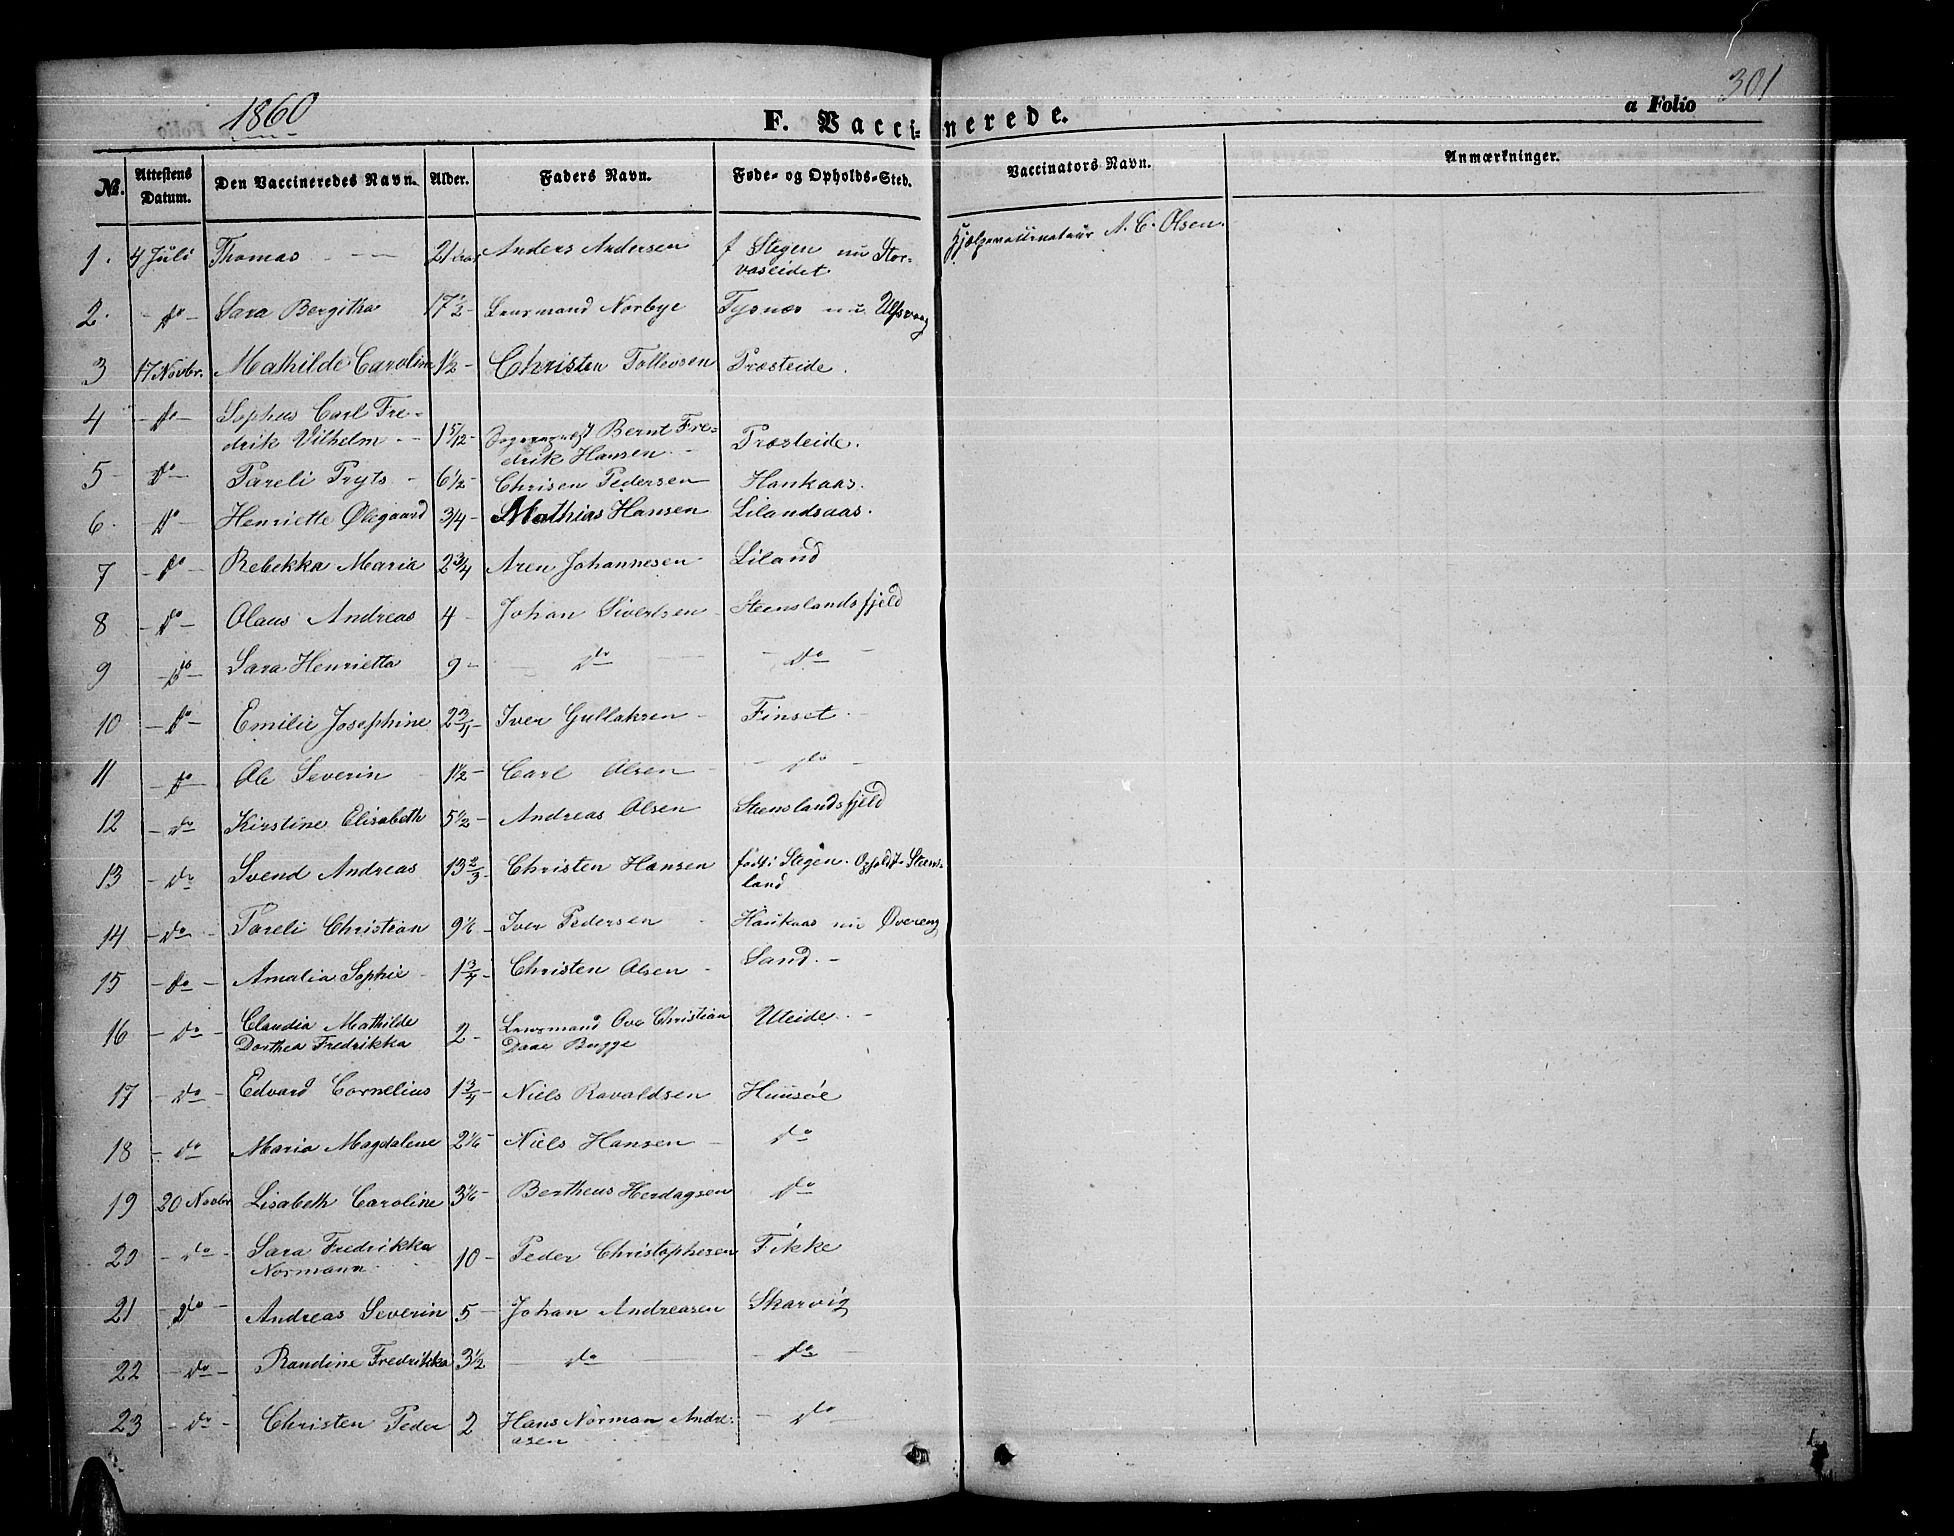 1860
F. Vaccinerede.
a Folio 301
No. Attestens Datum. Den Vaccineredes Navn. Alder. Faders Navn. Føde- og Opholds-Sted. Vaccinators Navn. Anmærkninger.
1. 4 Juli Thomas 21 Anders Andersen f Stegen nu Stor- Hjælpevaccinateur A. C. Olsen.
vaseidet.
2. - do - Sara Bergitha 17 1/2 - Lensmand Norbye Tysnæs nu Ulfsvaag
3 17 Novbr. Mathilde Caroline 1 1/2 - Christen Tollevsen Præsteide.
4 - do - Sophus Carl Fre-
drik Vilhelm - - 1 5/12 - Sogneprest Bernt Fre- Præsteide.
drik Hansen. -
5 - do - Pareli Pryts - 6 1/2 - Chrisen Pedersen Haukaas.
6. - do - Henriette Ølegaard 3/4 - Mathias Hansen Lilandsaas.
7 - do - Rebekka Maria 2 3/4 Aren Johannesen - Liland
8 - do - Olaus Andreas 4 - Johan Sivertsen - Steenslandsfjeld
9 - do - Sara Henrietta 9 - - do - - do -
10 - do - Emilie Josephine 2 3/4 - Iver Gullaksen - Finset. -
11 - do - Ole Severin - 1 1/2 - Carl Olsen - - do -
12 - do - Kirstine Elisabeth 5 1/2 - Andreas Olsen Steenslandsfjeld
13 - do Svend Andreas 13 2/3 - Christen Hansen født i Stegen. Opholdst. Steens-
land
14 - do - Pareli Christian 9 1/6 - Iver Pedersen - Haukaas nu Øvereng
15 - do - Amalia Sophie - 1 3/4 - Christen Olsen - Sand. -
16 - do - Claudia Mathilde 2 - Lensmand Ove Christian Uteide. -
Dorthea Fredrikka Daae Bugge
17 - do - Edvard Cornelius 1 3/4 - Niels Ravaldsen Huusøe
18 - do Maria Magdalene 2 1/6 - Niels Hansen - do
19 20 Novbr Lisabeth Caroline 3 1/6 - Bertheus Herdagsen do
20 - do - Sara Fredrikka 10 - Peder Christophersen Fikke
Normann
21 - do - Andreas Severin 5 - Johan Andreasen Skarvig
22 - do - Randine Fredrikka 3 1/2 - do - - do -
23 - do - Christen Peder 2 Hans Norman Andre- - do -
asen